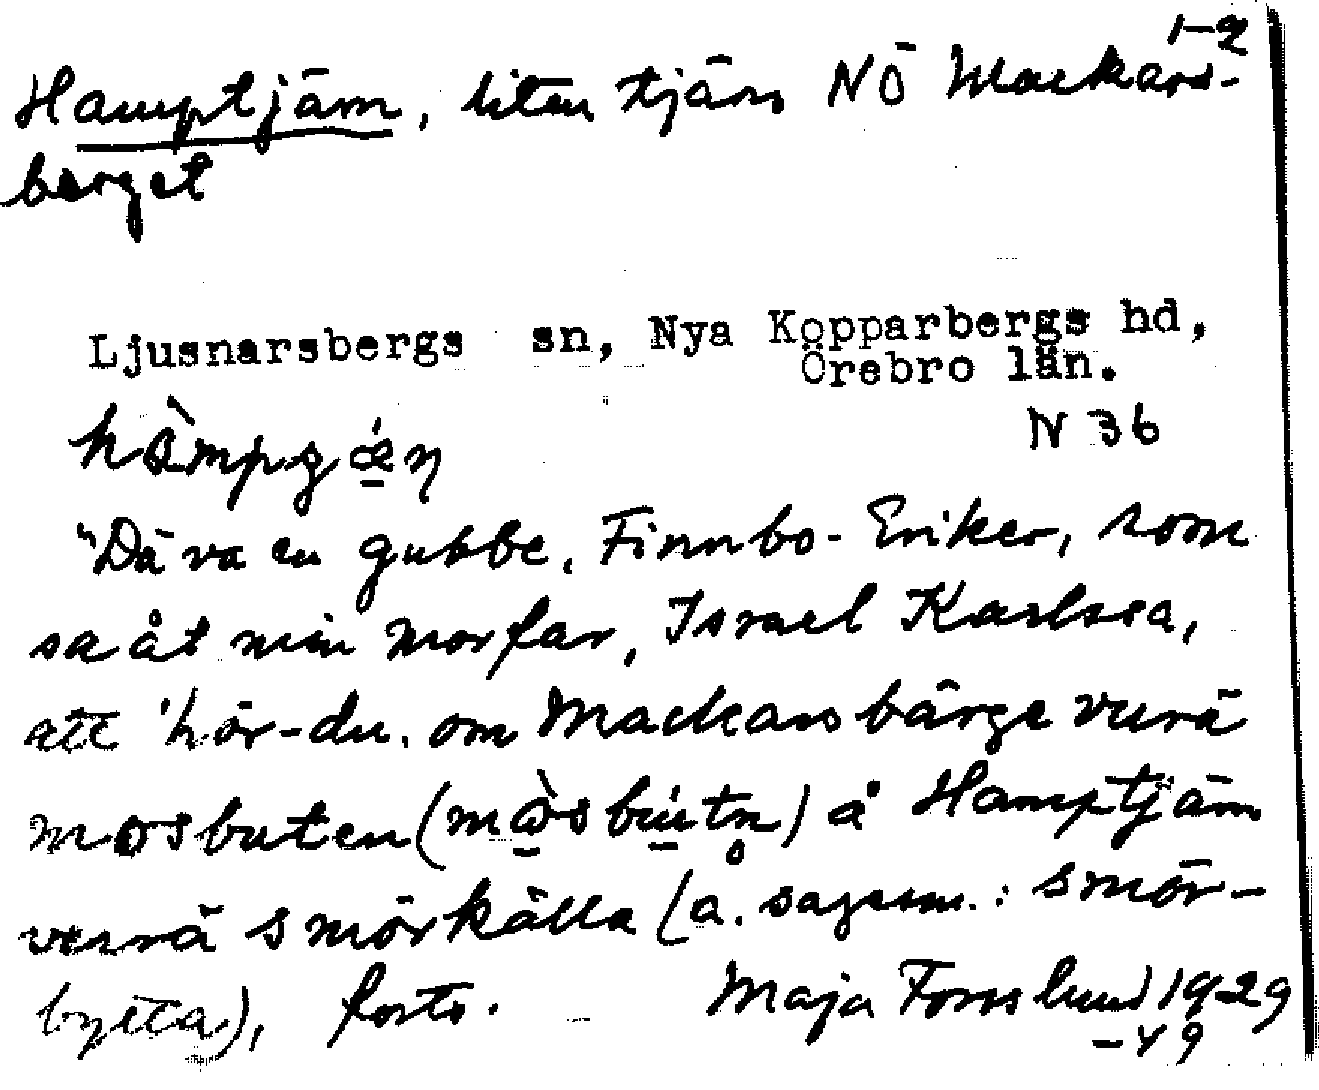 1-2
Hamptjärn, liten tjärn NÖ Mackars-
berget
Ljusnarsbergs sn, Nya Kopparbergs hd,
Örebro län.
N 36
"Dä va en gubbe, Finnbo-Eriker, som
sa åt min morfar, Israel Karlssa,
att 'hör-du, om Mackarsbärge vurä
mosbuten () å Hamptjärn
vurä smörkälla (a. sagesm.: smör-
bytta), forts. Maja Forsslund 1929
-49